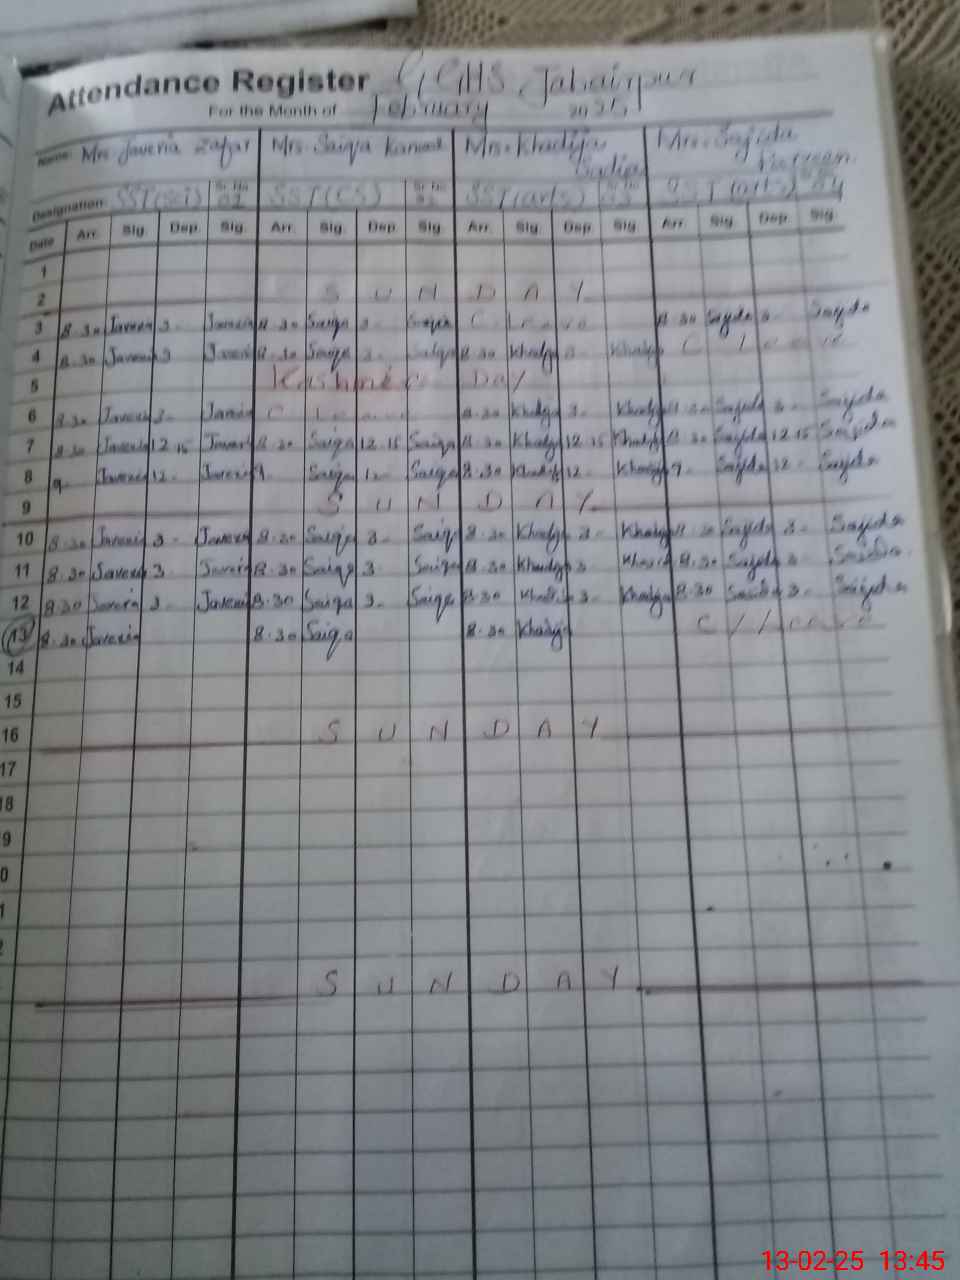 Attendance Register GGHS Jahairpur
For the Month of February 2025
Name: Mrs Javeria Zafar Mrs. Saiqa Kanwal Mrs. Khadija Sadia Mrs. Sajida
Designation: SST(sci) Sr.No 01 SST(CS) Sr.No SST(arts) Sr.No 03 SST(arts) 04
Date Arr. Sig. Dep. Sig. Arr. Sig. Dep. Sig. Arr. Sig. Dep. Sig. Arr. Sig. Dep. Sig.
1
2 S U N D A Y
3 8.30 Javeria 3- Javeria 8.30 Saiqa 3- Saiqa C Leave 8.30 Sajida 3- Sajida
4 8.30 Javeria 3 Javeria 8.30 Saiqa 3- Saiqa 8.30 Khadija 3- Khadija C leave
5 Kashmir Day
6 8.30 Javeria 3- Javeria C Leave 8.30 Khadija 3- Khadija 8.30 Sajida 3- Sajida
7 8.30 Javeria 12.15 Javeria 8.30 Saiqa 12.15 Saiqa 8.30 Khadija 12.15 Khadija 8.30 Sajida 12.15 Sajida
8 9- Javeria 12- Javeria 9- Saiqa 12- Saiqa 8.30 Khadija 12- Khadija 9- Sajida 12- Sajida
9 S U N D A Y
10 8.30 Javeria 3- Javeria 8.30 Saiqa 3- Saiqa 8.30 Khadija 3- Khadija 8.30 Sajida 3- Sajida
11 8.30 Javeria 3 Javeria 8.30 Saiqa 3 Saiqa 8.30 Khadija 3 Khadija 8.30 Sajida 3- Sajida
12 8.30 Javeria 3- Javeria 8.30 Saiqa 3- Saiqa 8.30 Khadija 3- Khadija 8.30 Sajida 3- Sajida
13 8.30 Javeria 8.30 Saiqa 8.30 Khadija C/Leave
14
15
16 S U N D A Y
17
18
9
0
1
S U N D A Y
13-02-25 13:45